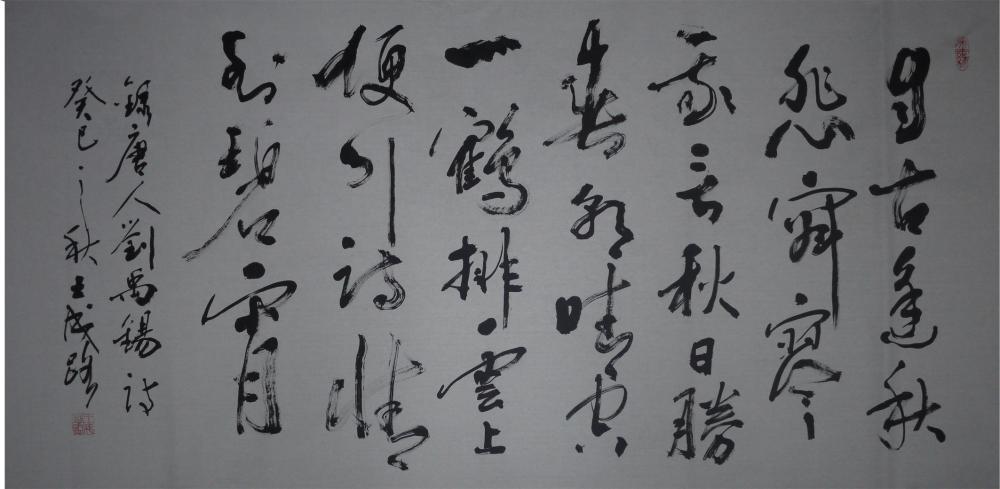 自古逢秋
悲寂寥
我言秋日勝
春朝晴空
一鶴排雲上
便引詩情
到碧霄
錄唐人劉禹錫詩
癸巳之秋王成